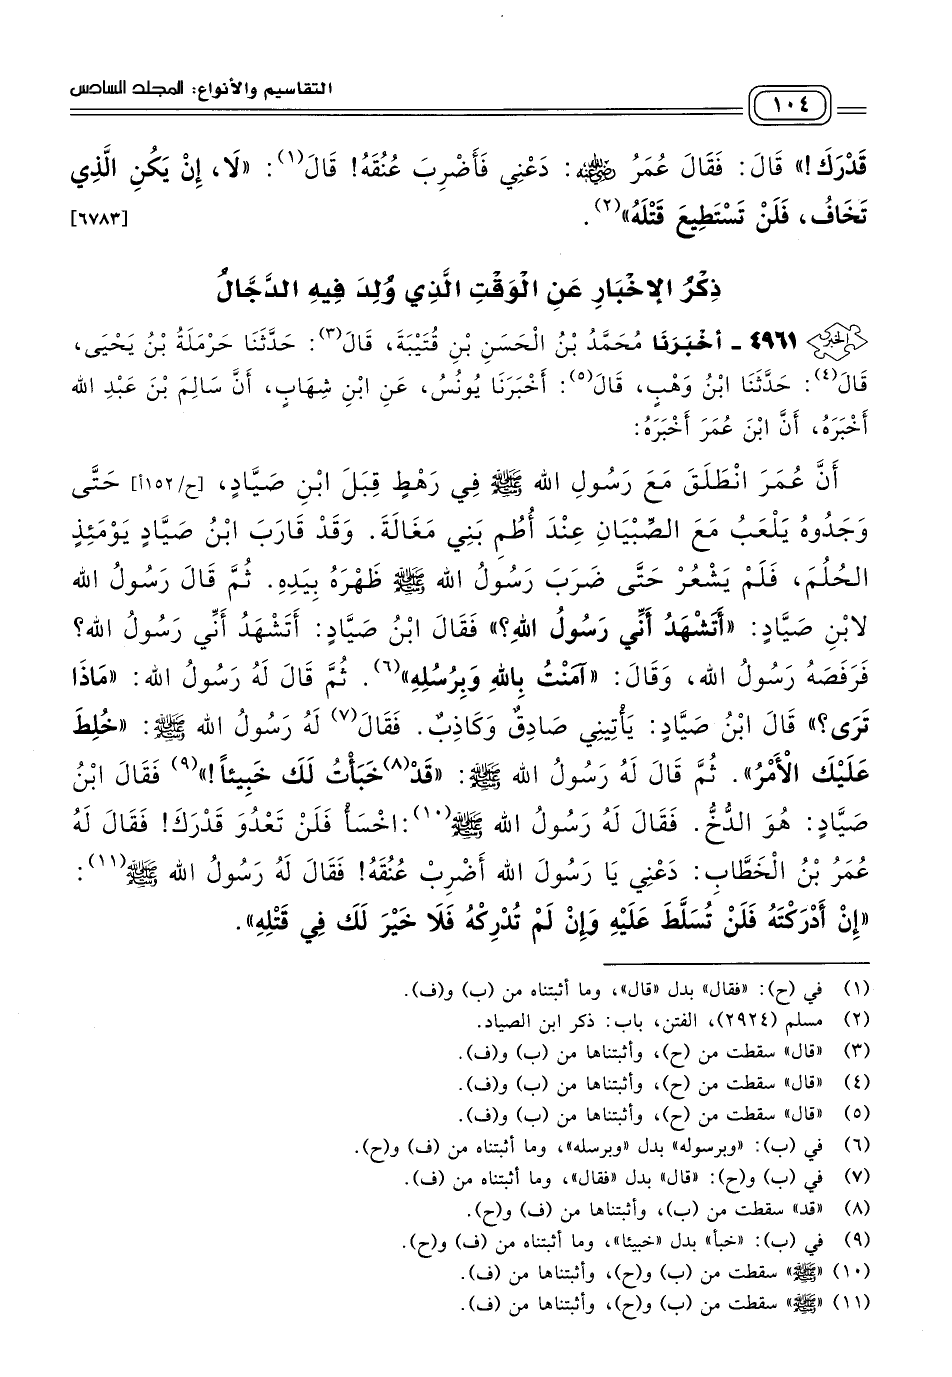 ١٠٤ التقاسيم والأنواع: المجلد السادس
قَدْرَكَ!» قَالَ: فَقَالَ عُمَرُ رضي الله عنه: دَعْنِي فَأَضْرِبَ عُنُقَهُ! قَالَ(١): «لَا، إِنْ يَكُنِ الَّذِي
تَخَافُ، فَلَنْ تَسْتَطِيعَ قَتْلَهُ»(٢). [٦٧٨٣]
ذِكْرُ الإِخْبَارِ عَنِ الْوَقْتِ الَّذِي وُلِدَ فِيهِ الدَّجَّالُ
٤٩٦١ - أَخْبَرَنَا مُحَمَّدُ بْنُ الْحَسَنِ بْنِ قُتَيْبَةَ، قَالَ(٣): حَدَّثَنَا حَرْمَلَةُ بْنُ يَحْيَى،
قَالَ(٤): حَدَّثَنَا ابْنُ وَهْبٍ، قَالَ(٥): أَخْبَرَنَا يُونُسُ، عَنِ ابْنِ شِهَابٍ، أَنَّ سَالِمَ بْنَ عَبْدِ الله
أَخْبَرَهُ، أَنَّ ابْنَ عُمَرَ أَخْبَرَهُ:
أَنَّ عُمَرَ انْطَلَقَ مَعَ رَسُولِ الله ﷺ فِي رَهْطٍ قِبَلَ ابْنِ صَيَّادٍ، [ح/١٥٢أ] حَتَّى
وَجَدُوهُ يَلْعَبُ مَعَ الصِّبْيَانِ عِنْدَ أُطُمِ بَنِي مَغَالَةَ. وَقَدْ قَارَبَ ابْنُ صَيَّادٍ يَوْمَئِذٍ
الحُلُمَ، فَلَمْ يَشْعُرْ حَتَّى ضَرَبَ رَسُولُ الله ﷺ ظَهْرَهُ بِيَدِهِ. ثُمَّ قَالَ رَسُولُ الله
لابْنِ صَيَّادٍ: «أَتَشْهَدُ أَنِّي رَسُولُ اللهِ؟» فَقَالَ ابْنُ صَيَّادٍ: أَتَشْهَدُ أَنِّي رَسُولُ الله؟
فَرَفَصَهُ رَسُولُ الله، وَقَالَ: «آمَنْتُ بِاللهِ وَبِرُسُلِهِ»(٦). ثُمَّ قَالَ لَهُ رَسُولُ الله: «مَاذَا
تَرَى؟» قَالَ ابْنُ صَيَّادٍ: يَأْتِينِي صَادِقٌ وَكَاذِبٌ. فَقَالَ(٧) لَهُ رَسُولُ الله ﷺ: «خُلِطَ
عَلَيْكَ الأَمْرُ». ثُمَّ قَالَ لَهُ رَسُولُ الله ﷺ: «قَدْ(٨) خَبَأْتُ لَكَ خَبِيئاً!»(٩) فَقَالَ ابْنُ
صَيَّادٍ: هُوَ الدُّخُّ. فَقَالَ لَهُ رَسُولُ الله ﷺ(١٠): اخْسَأْ فَلَنْ تَعْدُوَ قَدْرَكَ! فَقَالَ لَهُ
عُمَرُ بْنُ الْخَطَّابِ: دَعْنِي يَا رَسُولَ الله أَضْرِبْ عُنُقَهُ! فَقَالَ لَهُ رَسُولُ الله ﷺ(١١):
«إِنْ أَدْرَكْتَهُ فَلَنْ تُسَلَّطَ عَلَيْهِ وَإِنْ لَمْ تُدْرِكْهُ فَلَا خَيْرَ لَكَ فِي قَتْلِهِ».
(١) في (ح): «فقال» بدل «قال»، وما أثبتناه من (ب) و(ف).
(٢) مسلم (٢٩٢٤)، الفتن، باب: ذكر ابن الصياد.
(٣) «قال» سقطت من (ح)، وأثبتناها من (ب) و(ف).
(٤) «قال» سقطت من (ح)، وأثبتناها من (ب) و(ف).
(٥) «قال» سقطت من (ح)، وأثبتناها من (ب) و(ف).
(٦) في (ب): «وبرسوله» بدل «وبرسله»، وما أثبتناه من (ف) و(ح).
(٧) في (ب) و(ح): «قال» بدل «فقال»، وما أثبتناه من (ف).
(٨) «قد» سقطت من (ب)، وأثبتناها من (ف) و(ح).
(٩) في (ب): «خبأ» بدل «خبيئا»، وما أثبتناه من (ف) و(ح).
(١٠) «ﷺ» سقطت من (ب) و(ح)، وأثبتناها من (ف).
(١١) «ﷺ» سقطت من (ب) و(ح)، وأثبتناها من (ف).